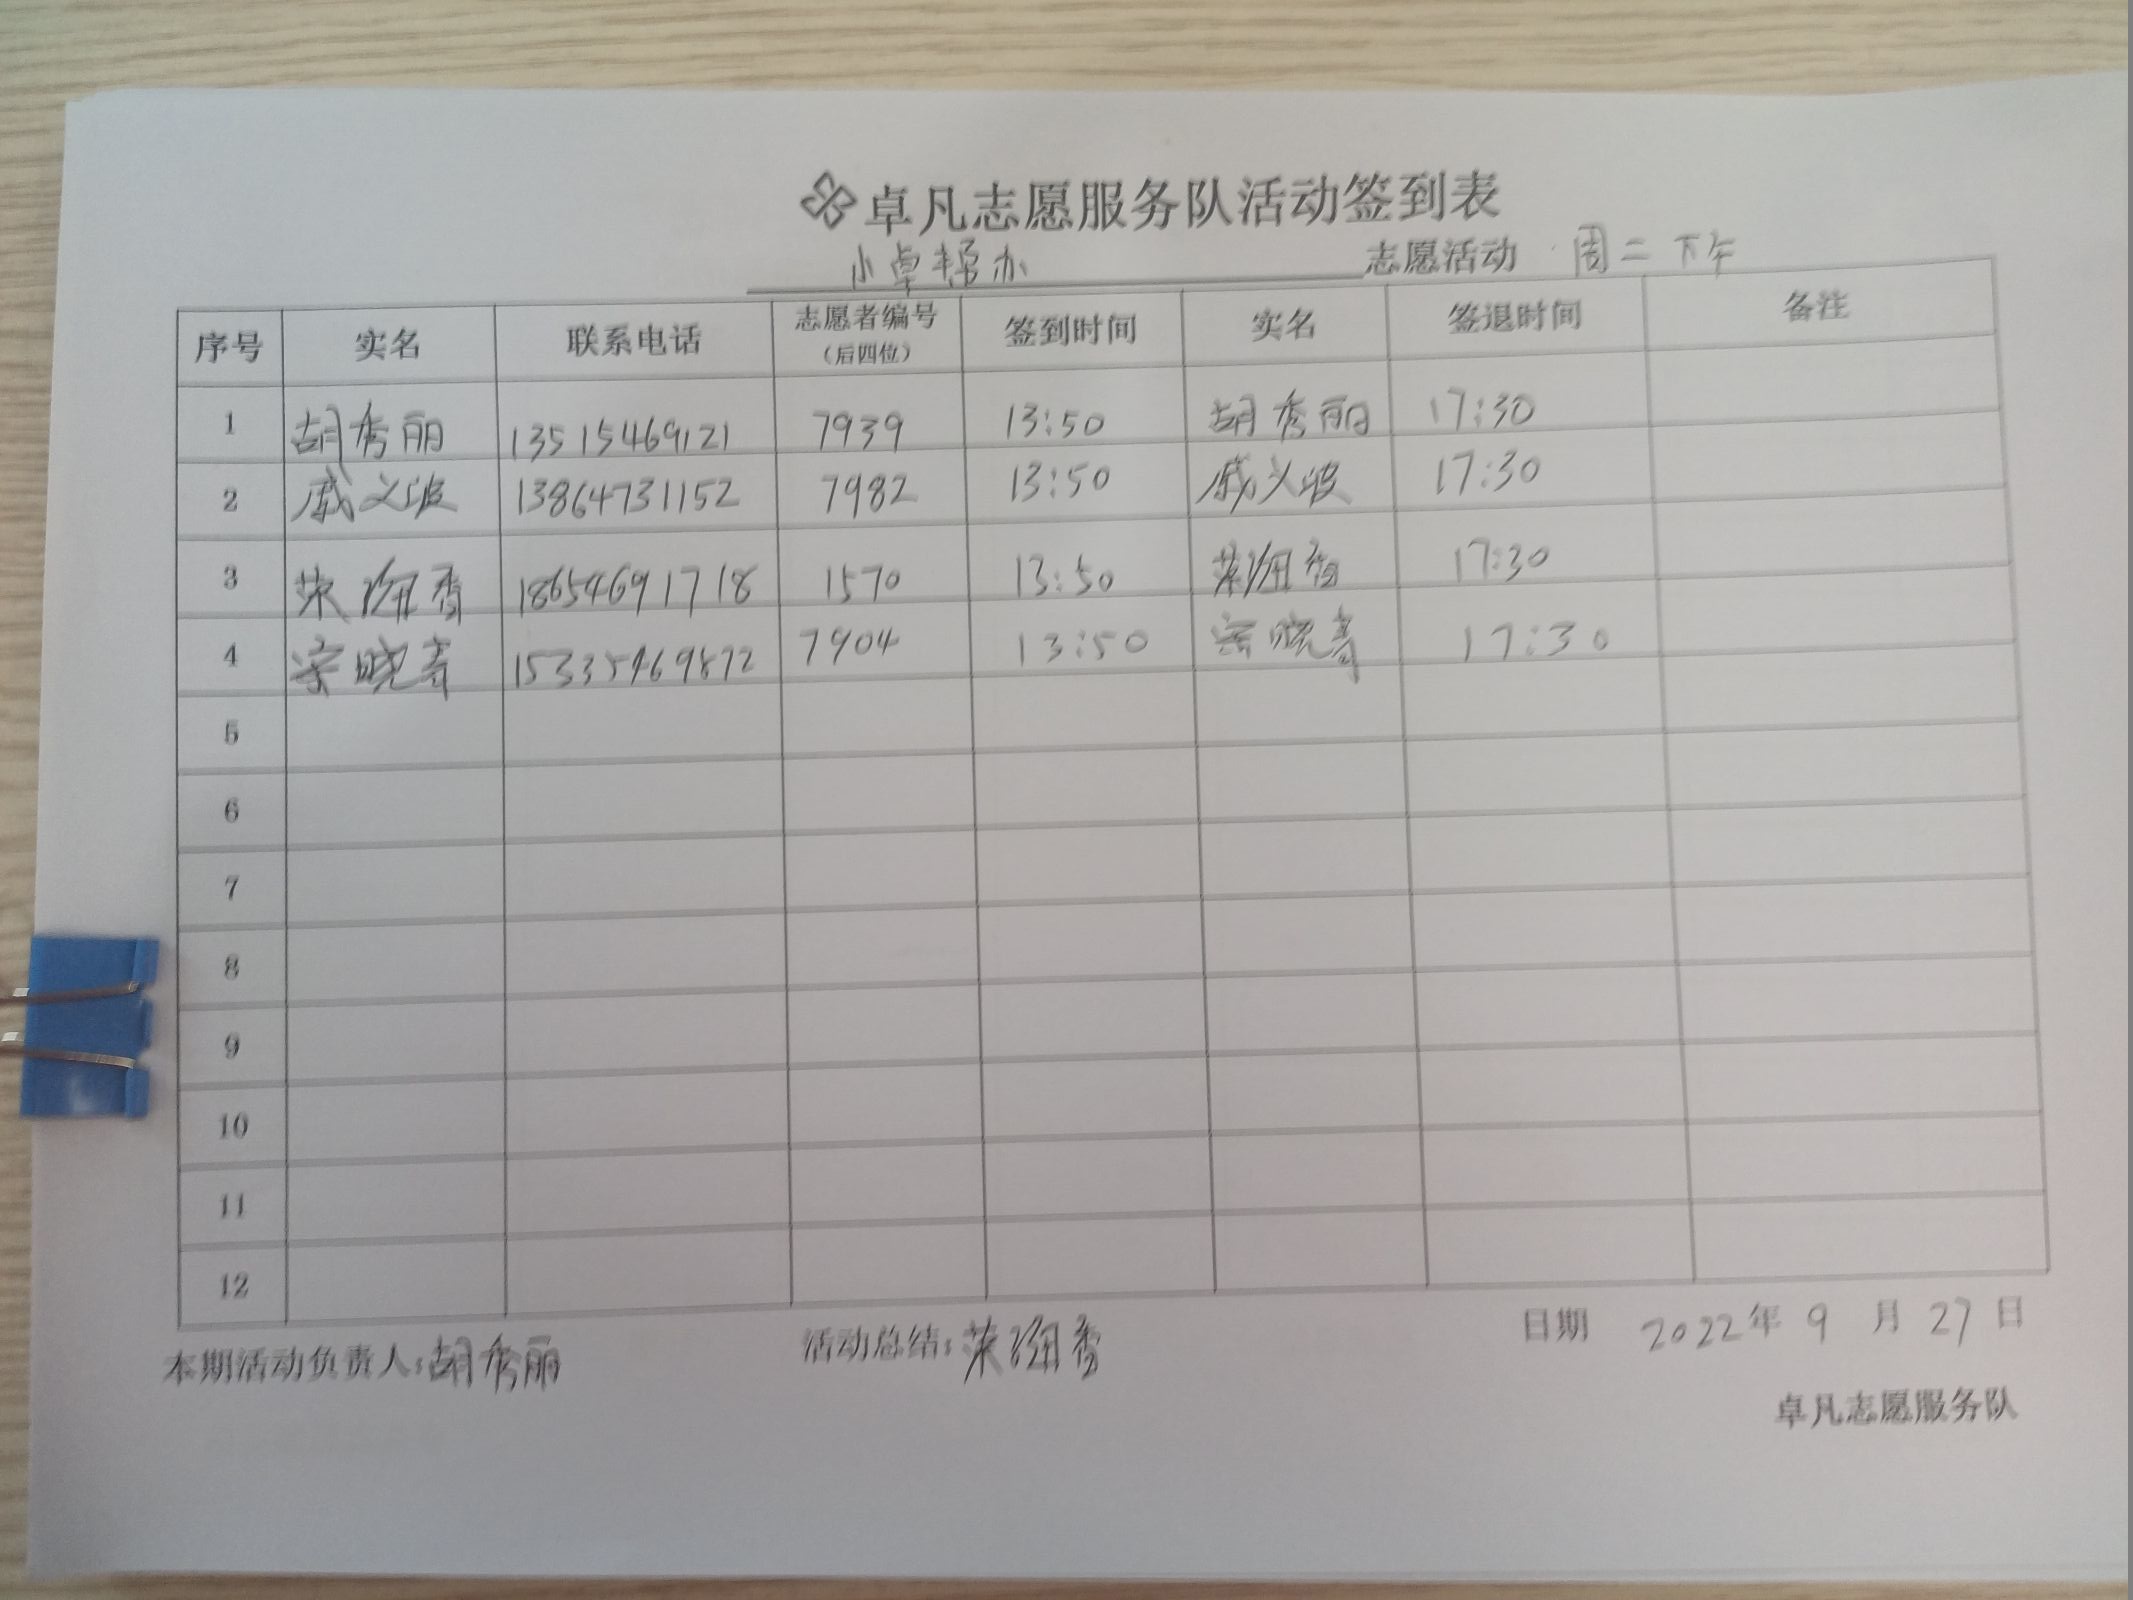 卓凡志愿服务队活动签到表
小卓帮办 志愿活动 周二下午
序号 实名 联系电话 志愿者编号（后四位） 签到时间 实名 签退时间 备注
1 胡秀丽 13515469121 7939 13:50 胡秀丽 17:30
2 戚义波 13864731152 7982 13:50 戚义波 17:30
3 18654691718 1570 13:50 17:30
4 15335469872 7904 13:50 17:30
5
6
7
8
9
10
11
12
本期活动负责人：胡秀丽 活动总结： 日期 2022年9月27日
卓凡志愿服务队